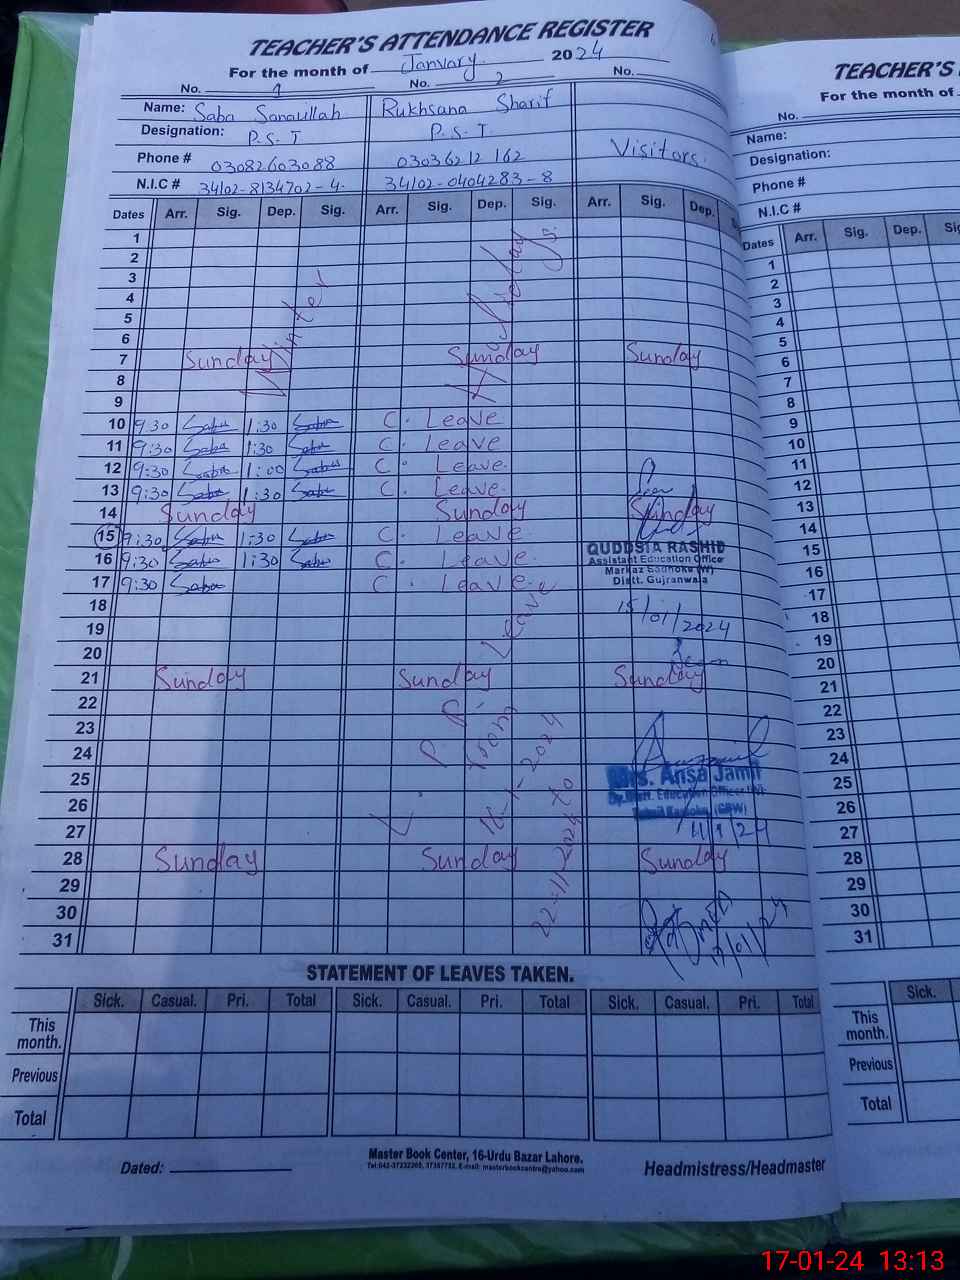 TEACHER'S ATTENDANCE REGISTER
For the month of January. 2024
No. 1 No. 2 No.
Name: Saba Sanaullah Rukhsana Sharif
Designation: P.S.T P.S.T.
Phone # 03082603088 03036212162 Visitors.
N.I.C # 34102-8134702-4. 34102-0404283-8
Dates Arr. Sig. Dep. Sig. Arr. Sig. Dep. Sig. Arr. Sig. Dep.
1
2
3
4
5
6
7 Sunday Sunday Sunday
8
9
Winter Holidays.
10 9:30 Saba 1:30 Saba C. Leave
11 9:30 Saba 1:30 Saba C. Leave
12 9:30 Saba 1:00 Saba C. Leave.
13 9:30 Saba 1:30 Saba C. Leave.
14 Sunday Sunday Sunday
15 9:30 Saba 1:30 Saba C. Leave
16 9:30 Saba 1:30 Saba C. Leave.
17 9:30 Saba C. Leave.
QUDDSIA RASHID
Assistant Education Office
Markaz Sadhoke (W)
Distt. Gujranwala
15/01/2024
18
19
20
21 Sunday Sunday Sunday
22
23
24
25
26
27
28 Sunday Sunday Sunday
29
30
31
Leave
from
-1-2024
to
22-11-2024
Mrs. Ansa Jamil
Dy. Distt. Education Officer (W)
Tehsil Kamoke (GRW)
11/1/24
17/01/24
STATEMENT OF LEAVES TAKEN.
Sick. Casual. Pri. Total Sick. Casual. Pri. Total Sick. Casual. Pri. Total
This month.
Previous
Total
Dated:
Master Book Center, 16-Urdu Bazar Lahore.
Headmistress/Headmaster
TEACHER'S
For the month of
No.
Name:
Designation:
Phone #
N.I.C #
Dates Arr. Sig. Dep.
1
2
3
4
5
6
7
8
9
10
11
12
13
14
15
16
17
18
19
20
21
22
23
24
25
26
27
28
29
30
31
Sick.
This month.
Previous
Total
17-01-24 13:13